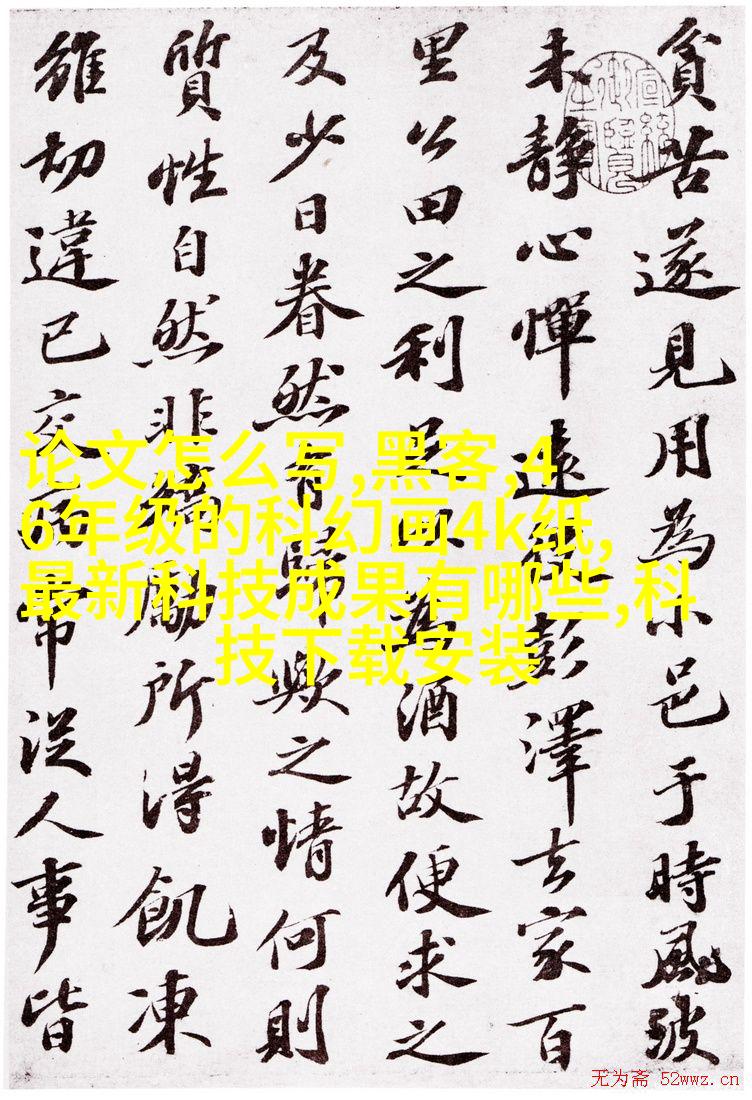 貧苦遂見用為小邑于時風波
未静心憚遠役彭澤去家百
里公田之利足以為酒故便求之
及少日眷然有歸歟之情何則
質性自然非矯勵所得飢凍
雖切違已交病常從人事皆
论文怎么写,黑客,4
6年级的科幻画4k纸,
最新科技成果有哪些,科
技下载安装
无为斋 52wwz.cn